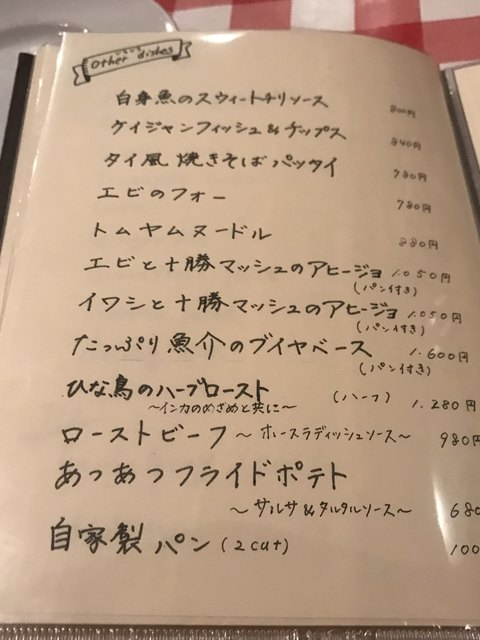 いろいろ
Other dishes
白身魚のスウィートチリソース 800円
ケイジャンフィッシュ&チップス 840円
タイ風焼きそばパッタイ 780円
エビのフォー 780円
トムヤムヌードル 880円
エビと十勝マッシュのアヒージョ 1.050円
(パン付き)
イワシと十勝マッシュのアヒージョ 1.050円
(パン付き)
たっぷり魚介のブイヤベース 1.600円
(パン付き)
ひな鳥のハーブロースト (ハーフ) 1.280円
~インカのめざめと共に~
ローストビーフ ~ホースラディッシュソース~ 980円
あつあつフライドポテト
~サルサ&タルタルソース~ 680
自家製パン(2cut) 100